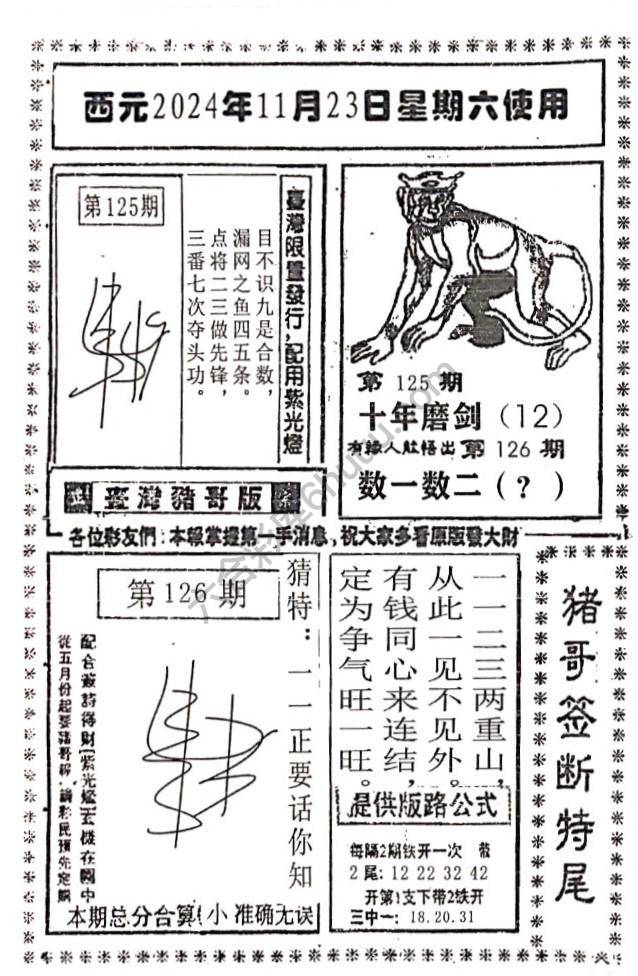 西元2024年11月23日星期六使用
第125期
目不识九是合数，
漏网之鱼四五条。
点将二三做先锋，
三番七次夺头功。
臺灣限量發行，配用紫光燈
臺灣豬哥版
第 125 期
十年磨剑（12）
有緣人能悟出 第 126 期
数一数二（？）
各位彩友們：本報掌握第一手消息，祝大家多看原版發大財
第 126 期
猜特：一一正要话你知
配合簽詩得財[紫光燈]玄機在圖中
從五月份起要豬哥報，請彩民預先定購
本期总分合算(小 准确无误
一一二三两重山，
从此一见不见外。
有钱同心来连结，
定为争气旺一旺。
提供版路公式
每隔2期铁开一次 带
2尾：12 22 32 42
开第1支下带2铁开
三中一：18.20.31
猪哥签断特尾